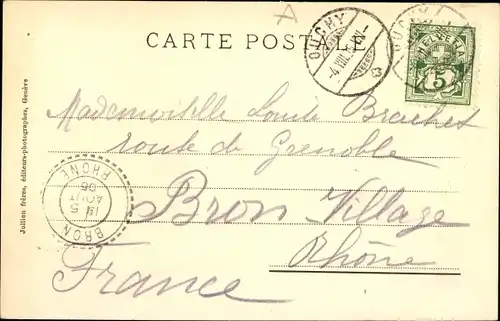 CARTE POSTALE
OUCHY
-4.VIII.
OUCHY
HELVETIA
5
Mademoiselle Louise Brachet
route de Grenoble
Bron Village
Rhône
France
BRON
5
AOUT
05
RHONE
Jullien frères, éditeurs-photographes, Genève